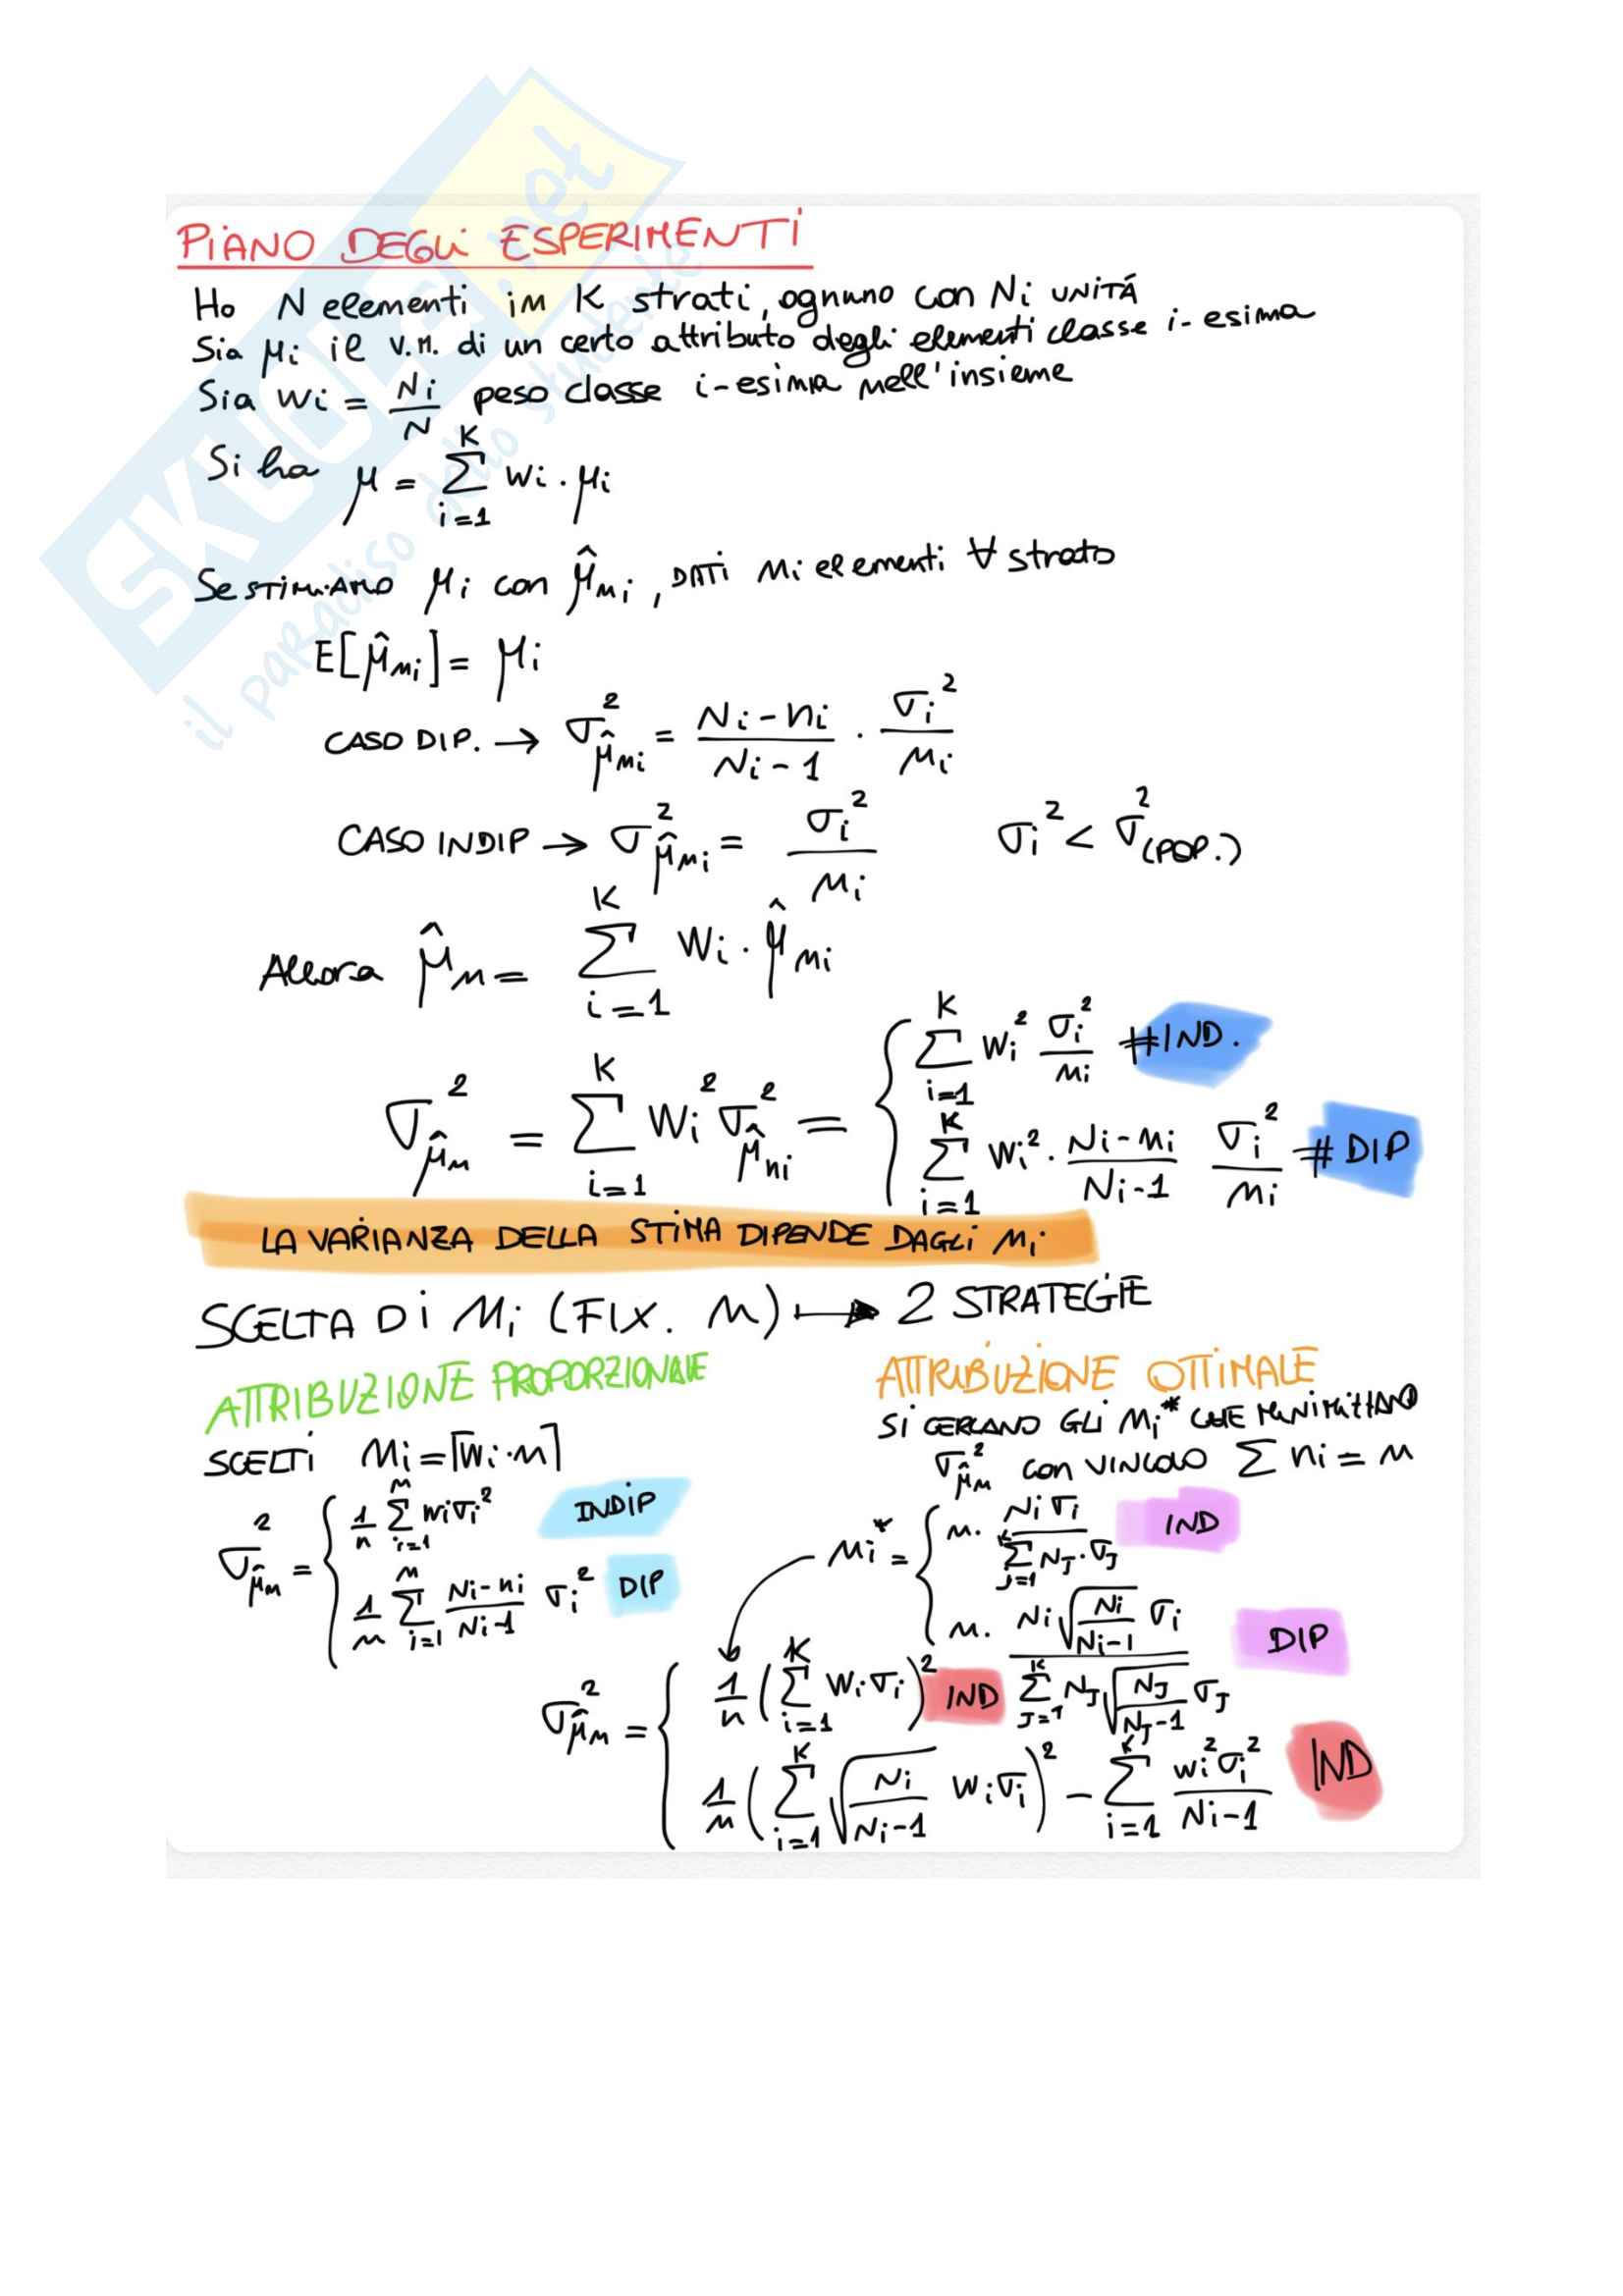 PIANO DEGLI ESPERIMENTI
Ho N elementi in K strati, ognuno con Ni UNITÁ
Sia μi il V.M. di un certo attributo degli elementi classe i-esima
Sia wi = Ni/N peso classe i-esima nell'insieme
Si ha μ = Σ_{i=1}^{K} wi · μi
Se STIMIAMO μi con μ̂ni, DATI ni elementi ∀ strato
E[μ̂ni] = μi
CASO DIP. → σ²_μ̂ni = (Ni-ni)/(Ni-1) · σi²/ni
CASO INDIP → σ²_μ̂ni = σi²/ni   σi² < σ²(POP.)
Allora μ̂n = Σ_{i=1}^{K} Wi · μ̂ni
σ²_μ̂n = Σ_{i=1}^{K} Wi² σ²_μ̂ni = { Σ_{i=1}^{K} Wi² σi²/ni #IND.
Σ_{i=1}^{K} Wi² · (Ni-ni)/(Ni-1) σi²/ni # DIP
LA VARIANZA DELLA STIMA DIPENDE DAGLI ni
SCELTA DI ni (FIX. n) ↦ 2 STRATEGIE
ATTRIBUZIONE PROPORZIONALE
SCELTI ni = ⌈wi·n⌉
σ²_μ̂n = { 1/n Σ_{i=1}^{n} wiσi² INDIP
1/n Σ_{i=1}^{n} (Ni-ni)/(Ni-1) σi² DIP
ATTRIBUZIONE OTTIMALE
SI CERCANO GLI ni* CHE MINIMIZZANO
σ²_μ̂n con VINCOLO Σ ni = n
ni* = { n · Niσi / Σ_{J=1}^{K} NJ·σJ IND
n · Ni√(Ni/(Ni-1)) σi / Σ_{J=1}^{K} NJ√(NJ/(NJ-1)) σJ DIP
σ²_μ̂n = { 1/n (Σ_{i=1}^{K} Wiσi)² IND
1/n (Σ_{i=1}^{K} √(Ni/(Ni-1)) Wiσi)² - Σ_{i=1}^{K} wi²σi²/(Ni-1) IND
SKUOLA.net
il paradiso dello studente